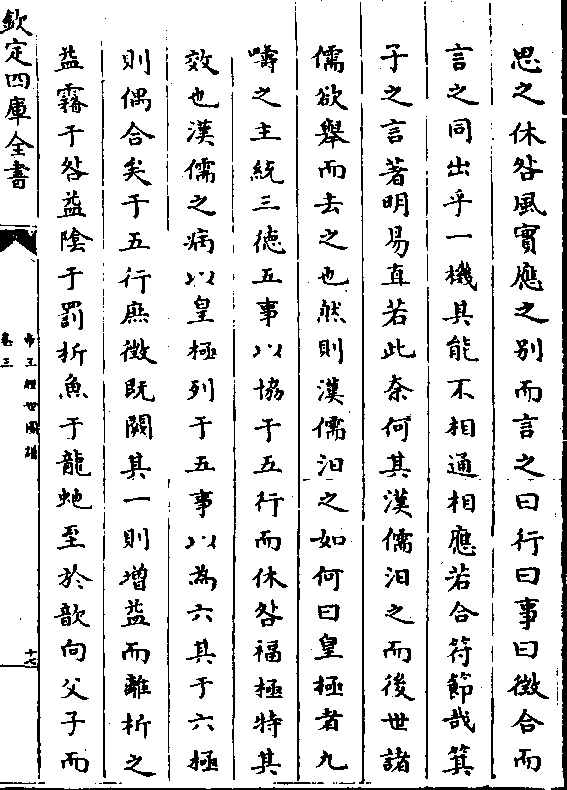 思之休咎風實應之别而言之曰行曰事曰徴合而
言之同出乎一機其能不相通相應若合符節哉箕
子之言著明易直若此奈何其漢儒汨之而後世諸
儒欲舉而去之也然則漢儒汨之如何曰皇極者九
疇之主統三徳五事以協于五行而休咎福極特其
效也漢儒之病以皇極列于五事以為六其于六極
則偶合矣于五行庶徴既闕其一則増益而離析之
益霧于咎益陰于罰析魚于龍虵至於歆向父子而
欽定四庫全書
帝王經世圖譜
卷三
十七